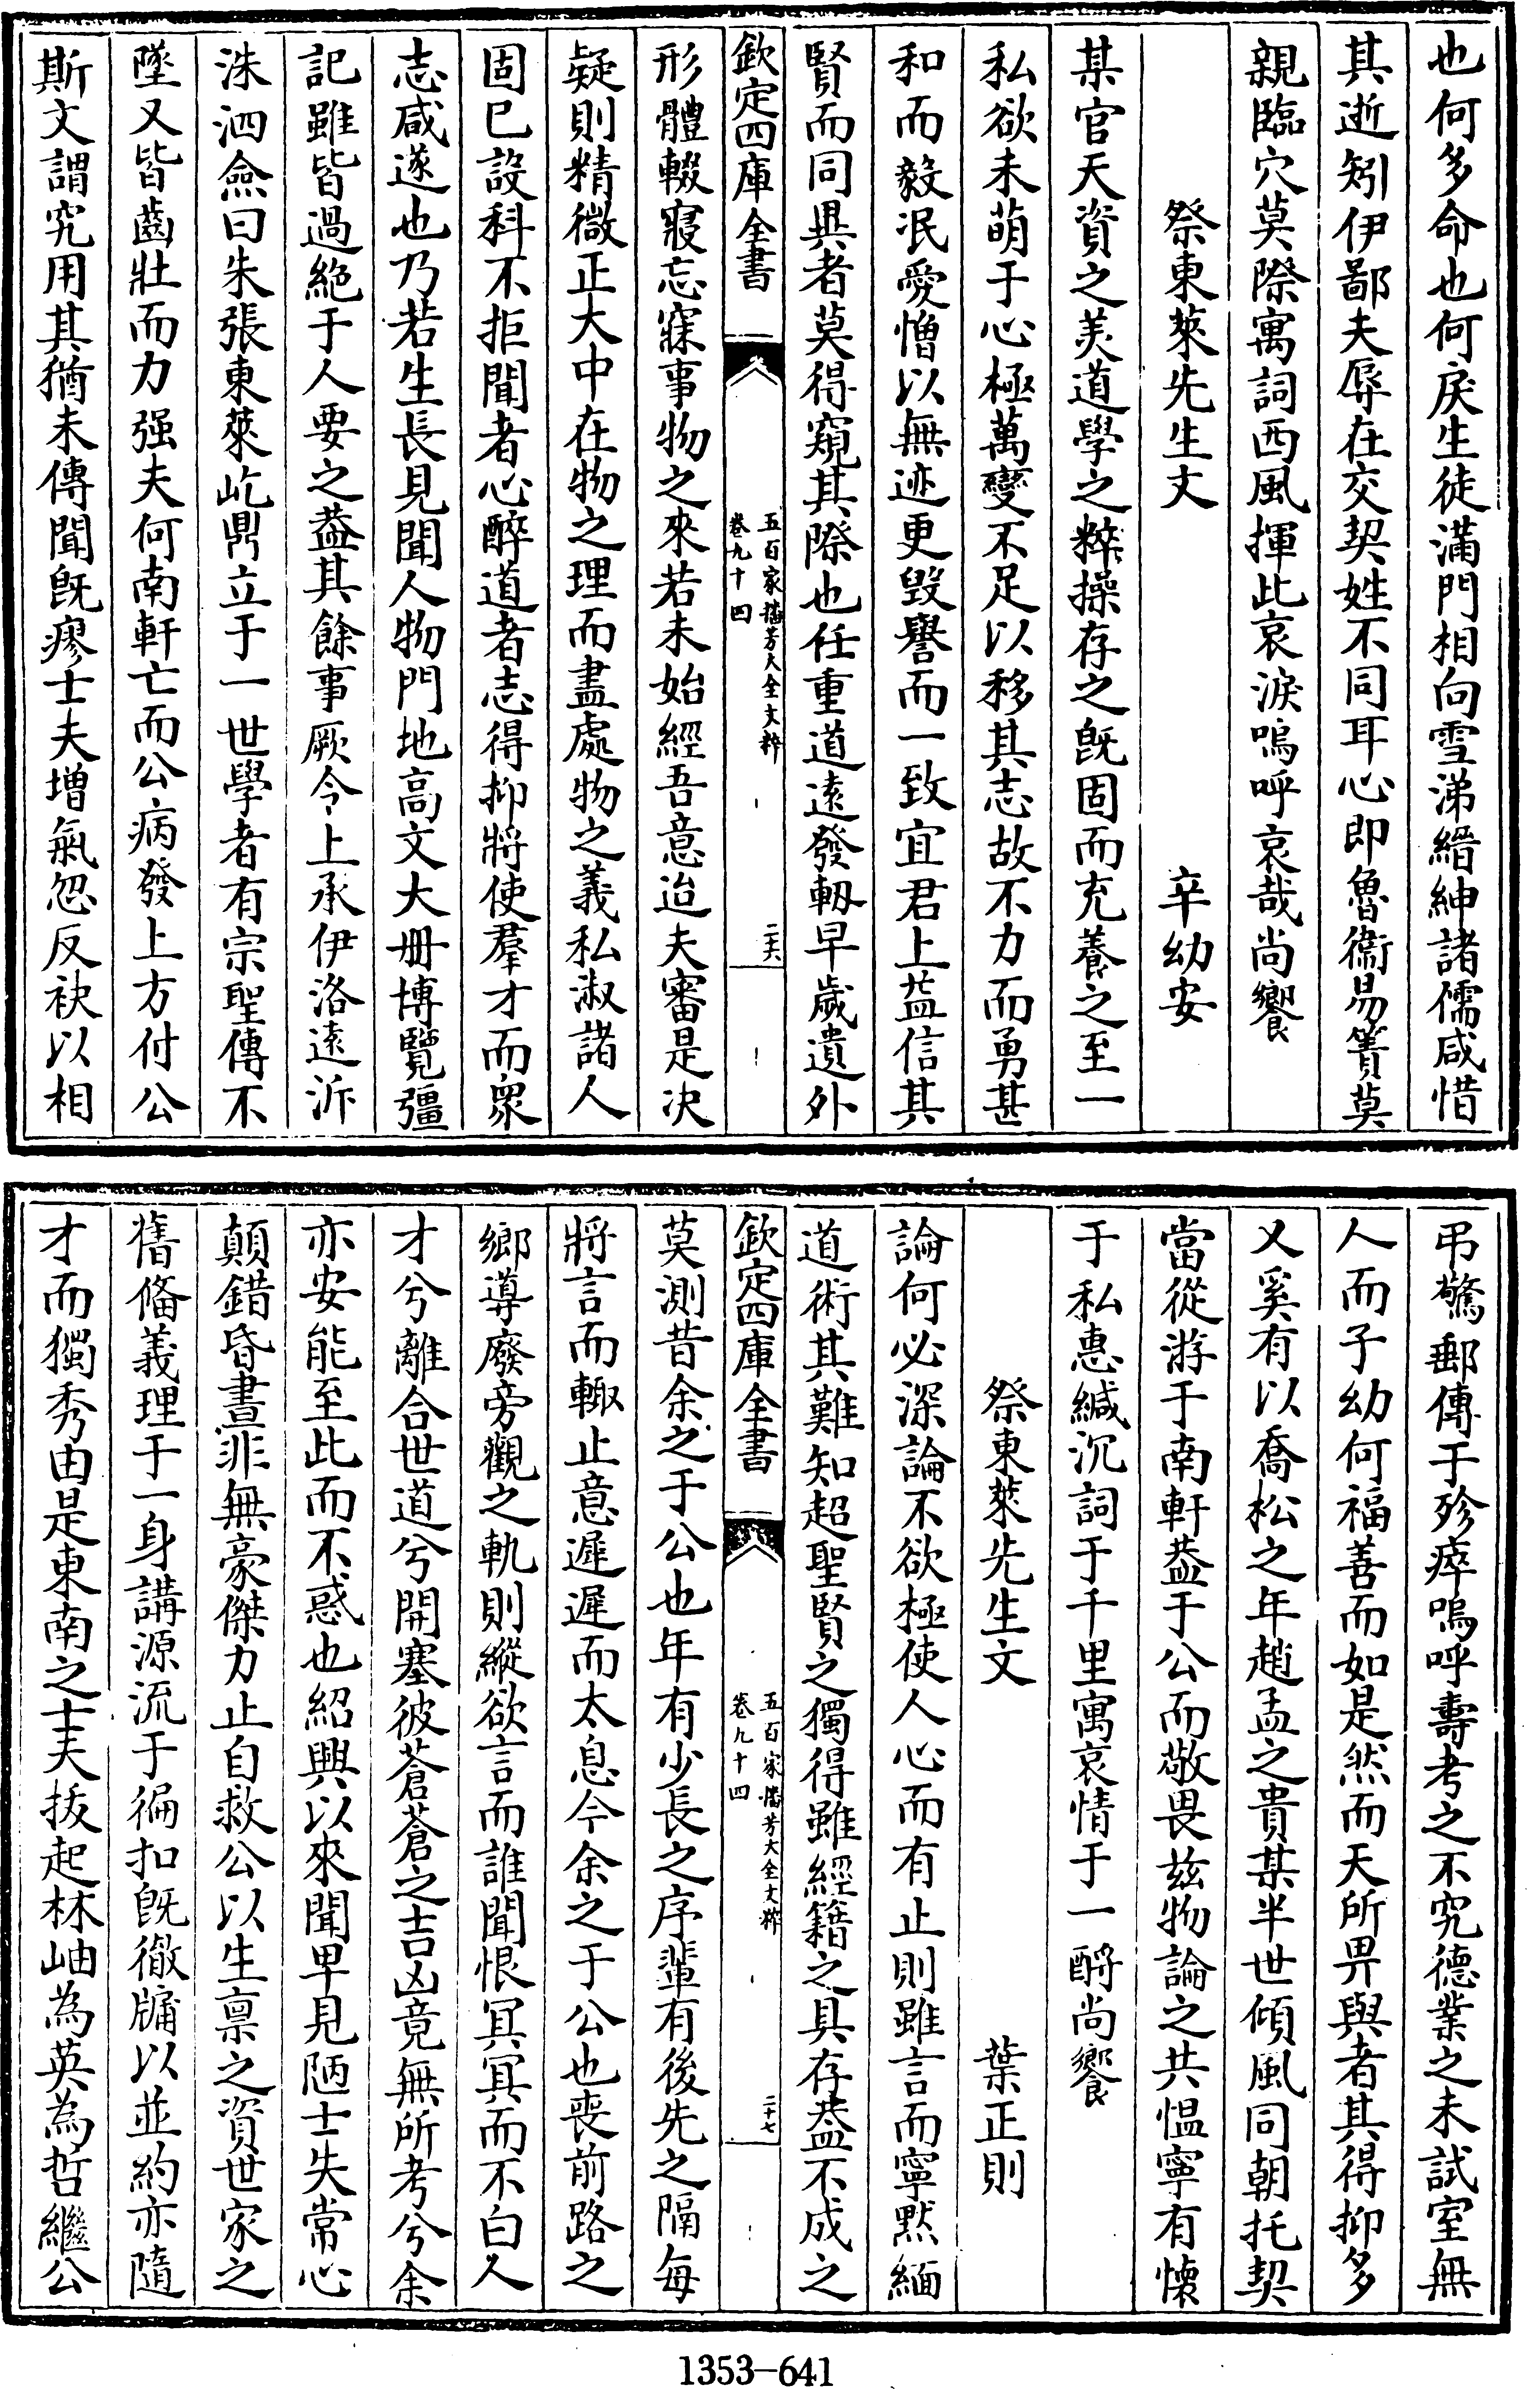 也何多命也何戾生徒滿門相向雪涕縉紳諸儒咸惜
其逝矧伊鄙夫辱在交契姓不同耳心即魯衞易簀莫
親臨穴莫際寓詞西風揮此哀淚嗚呼哀哉尚饗
祭東萊先生文 辛幼安
某官天資之美道學之粹操存之既固而充養之至一
私欲未萌于心極萬變不足以移其志故不力而勇甚
和而毅泯愛憎以無迹更毀譽而一致宜君上益信其
賢而同異者莫得窺其際也任重道遠發軔早歲遺外
欽定四庫全書 五百家播芳大全文粹 卷九十四 二十六
形體輟寢忘寐事物之來若未始經吾意迨夫審是决
疑則精微正大中在物之理而盡處物之義私淑諸人
固已設科不拒聞者心醉道者志得抑將使羣才而衆
志咸遂也乃若生長見聞人物門地高文大册博覽彊
記雖皆過絶于人要之葢其餘事厥今上承伊洛遠泝
洙泗僉曰朱張東萊屹鼎立于一世學者有宗聖傳不
墜又皆齒壯而力强夫何南軒亡而公病發上方付公
斯文謂究用其猶未傳聞既瘳士夫增氣忽反袂以相
弔驚郵傳于殄瘁嗚呼壽考之不究德業之未試室無
人而子幼何福善而如是然而天所畀與者其得抑多
又奚有以喬松之年趙孟之貴某半世傾風同朝托契
當從游于南軒葢于公而敬畏兹物論之共愠寧有懷
于私惠緘沉詞于千里寓哀情于一酹尚饗
祭東萊先生文 葉正則
論何必深論不欲極使人心而有止則雖言而寧默緬
道術其難知超聖賢之獨得雖經籍之具存葢不成之
欽定四庫全書 五百家播芳大全文粹 卷九十四 二十七
莫測昔余之于公也年有少長之序輩有後先之隔每
將言而輙止意遲遲而太息今余之于公也喪前路之
鄉導廢旁觀之軌則縱欲言而誰聞恨冥冥而不白人
才兮離合世道兮開塞彼蒼蒼之吉凶竟無所考兮余
亦安能至此而不惑也紹興以來聞卑見陋士失常心
顛錯昏晝非無豪傑力止自救公以生禀之資世家之
舊脩義理于一身講源流于徧扣既徹牖以並約亦隨
才而獨秀由是東南之士夫拔起林岫為英為哲繼公
1353-641